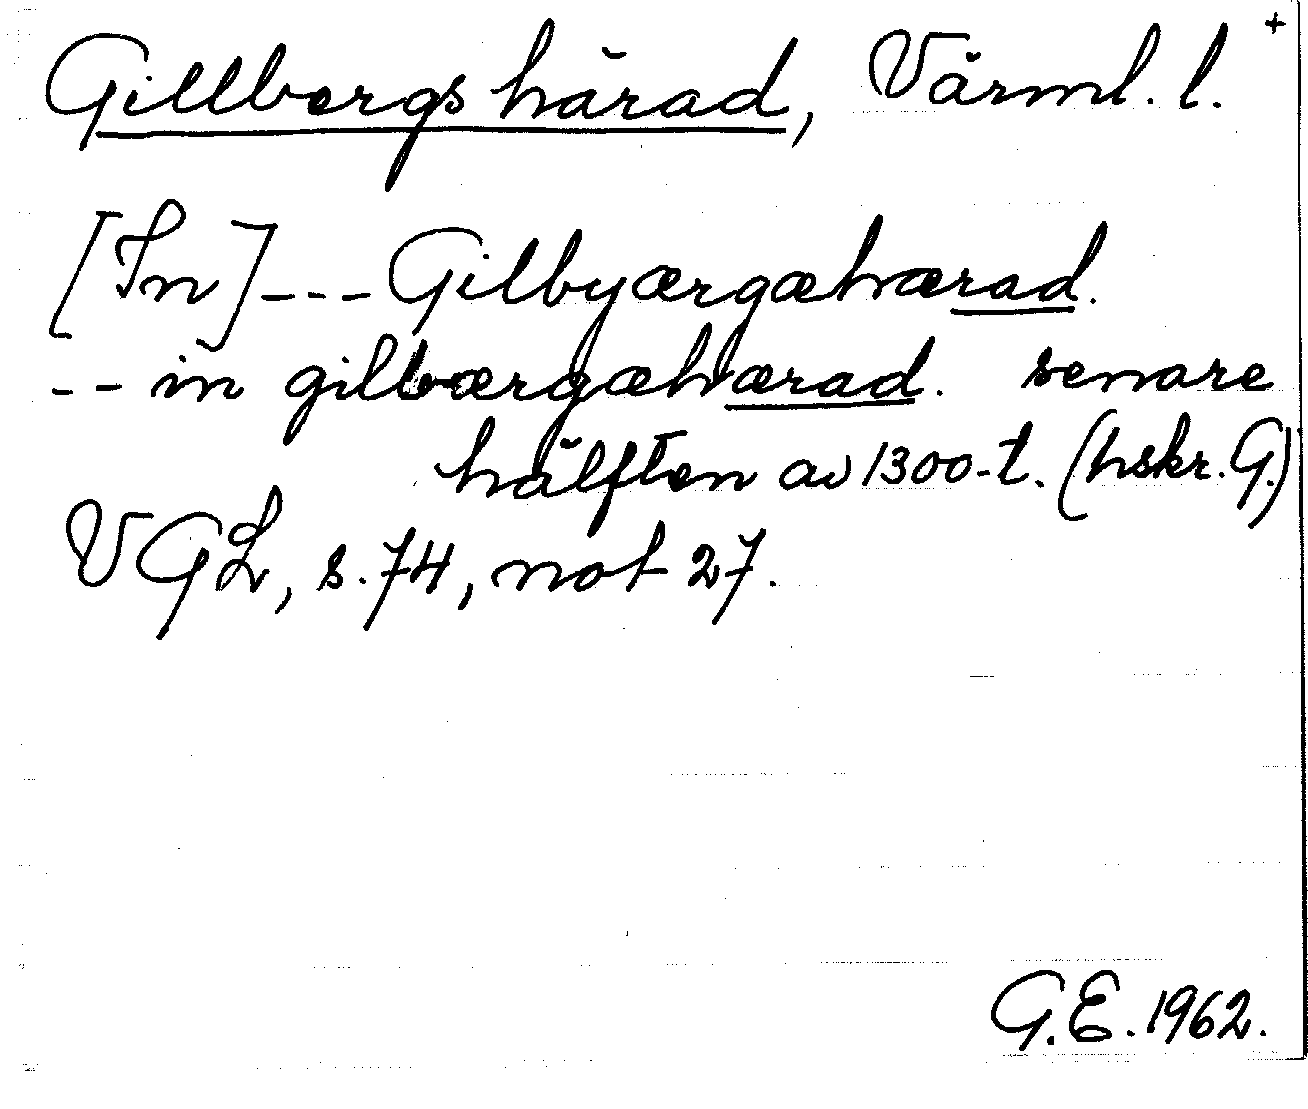 Gillbergs härad, Värml. l. +
[In] --- Gilbyærgæhærad.
-- in gilbærgæhærad. senare
hälften av 1300-t. (hskr. G.)
VGL, s. 74, not 27.
G.E. 1962.